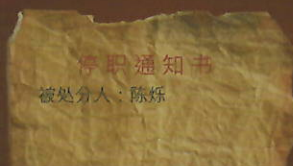 停职通知书
被处分人：陈烁